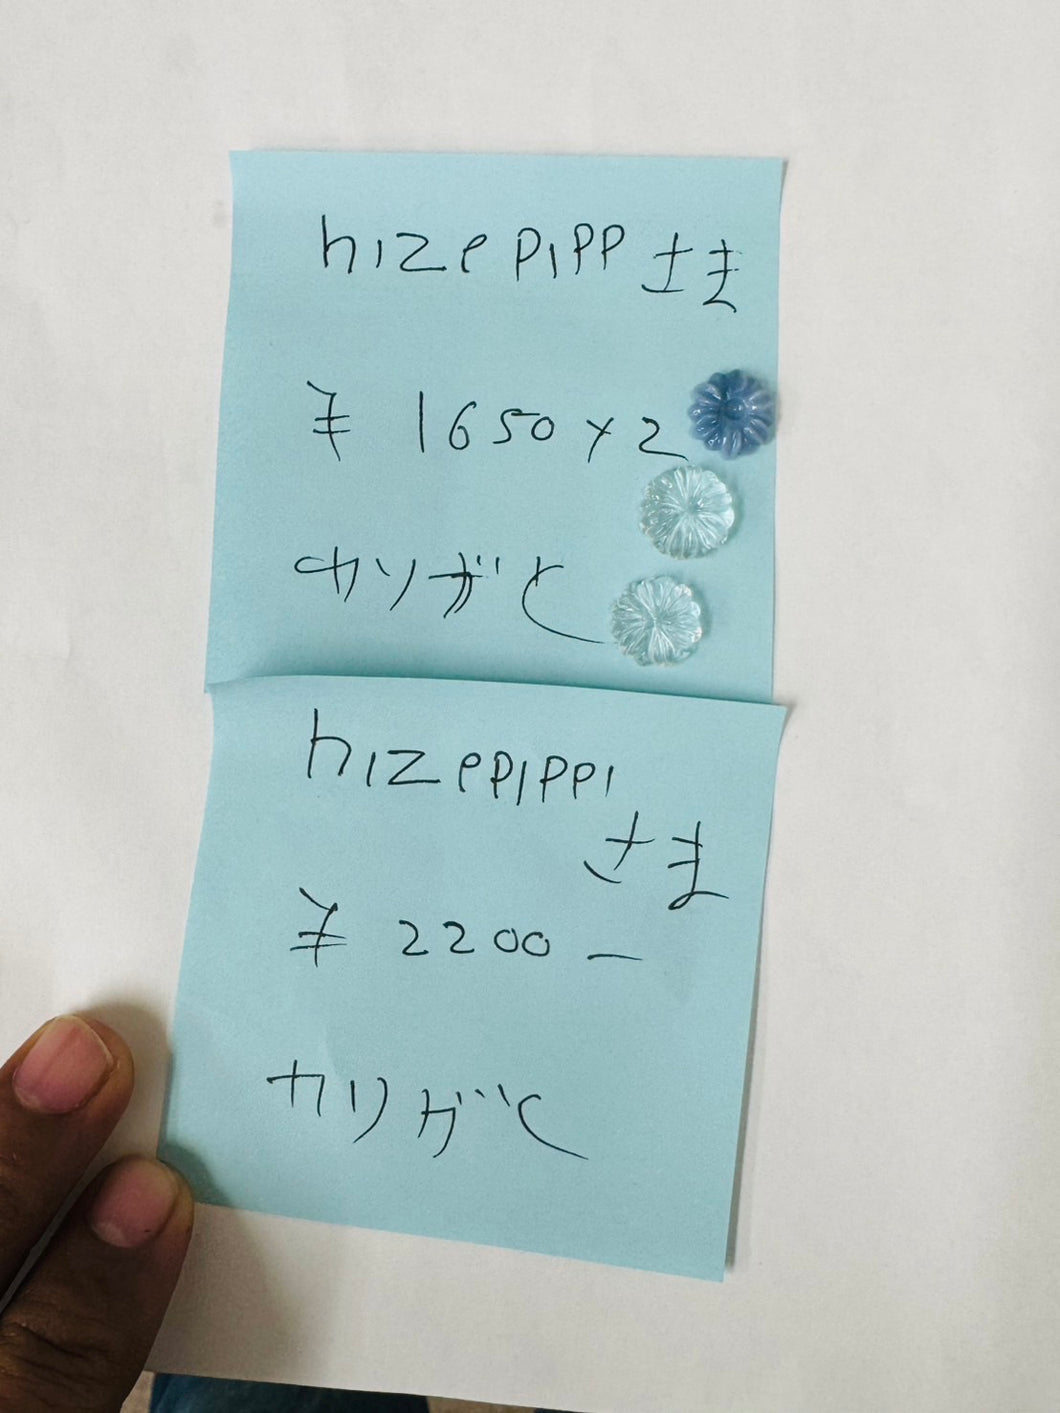 hizepipp さま
¥ 1650 x 2
カリガと
hizepippi
さま
¥ 2200 –
カリガと